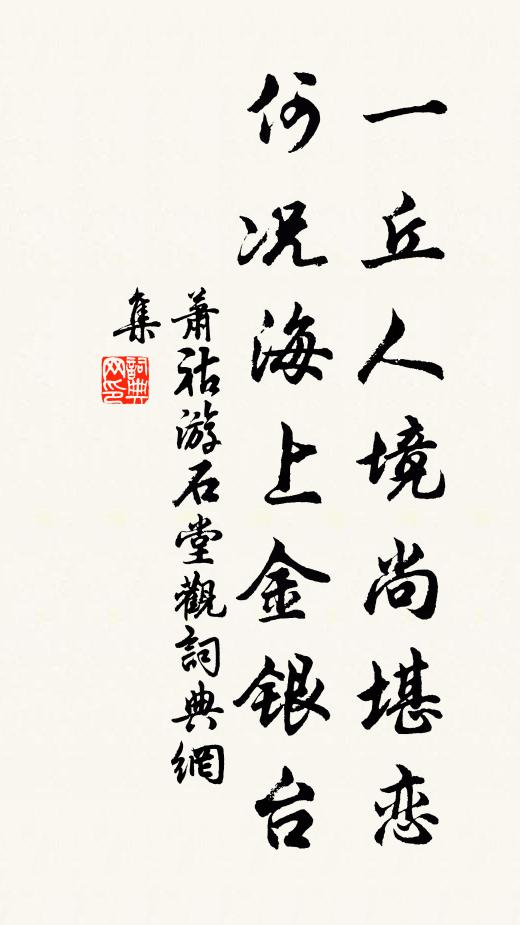 一丘人境尚堪恋
何况海上金银台
萧祜游石堂觀詞典網
集
詞典
网印